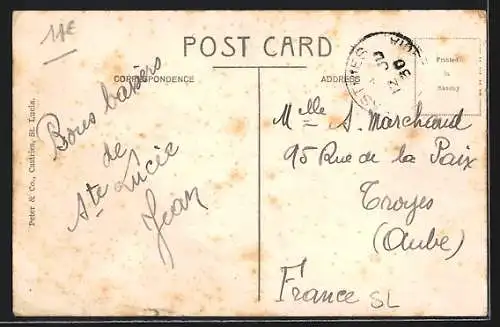 11€
POST CARD
CORRESPONDENCE
ADDRESS
Printed
in
Saxony
Peter & Co., Castries, St. Lucia.
Bons baisers
de
Ste Lucie
Jean
CASTRIES
LUCIA
30
Melle S. Marchand
95 Rue de la Paix
Troyes
(Aube)
France
SL